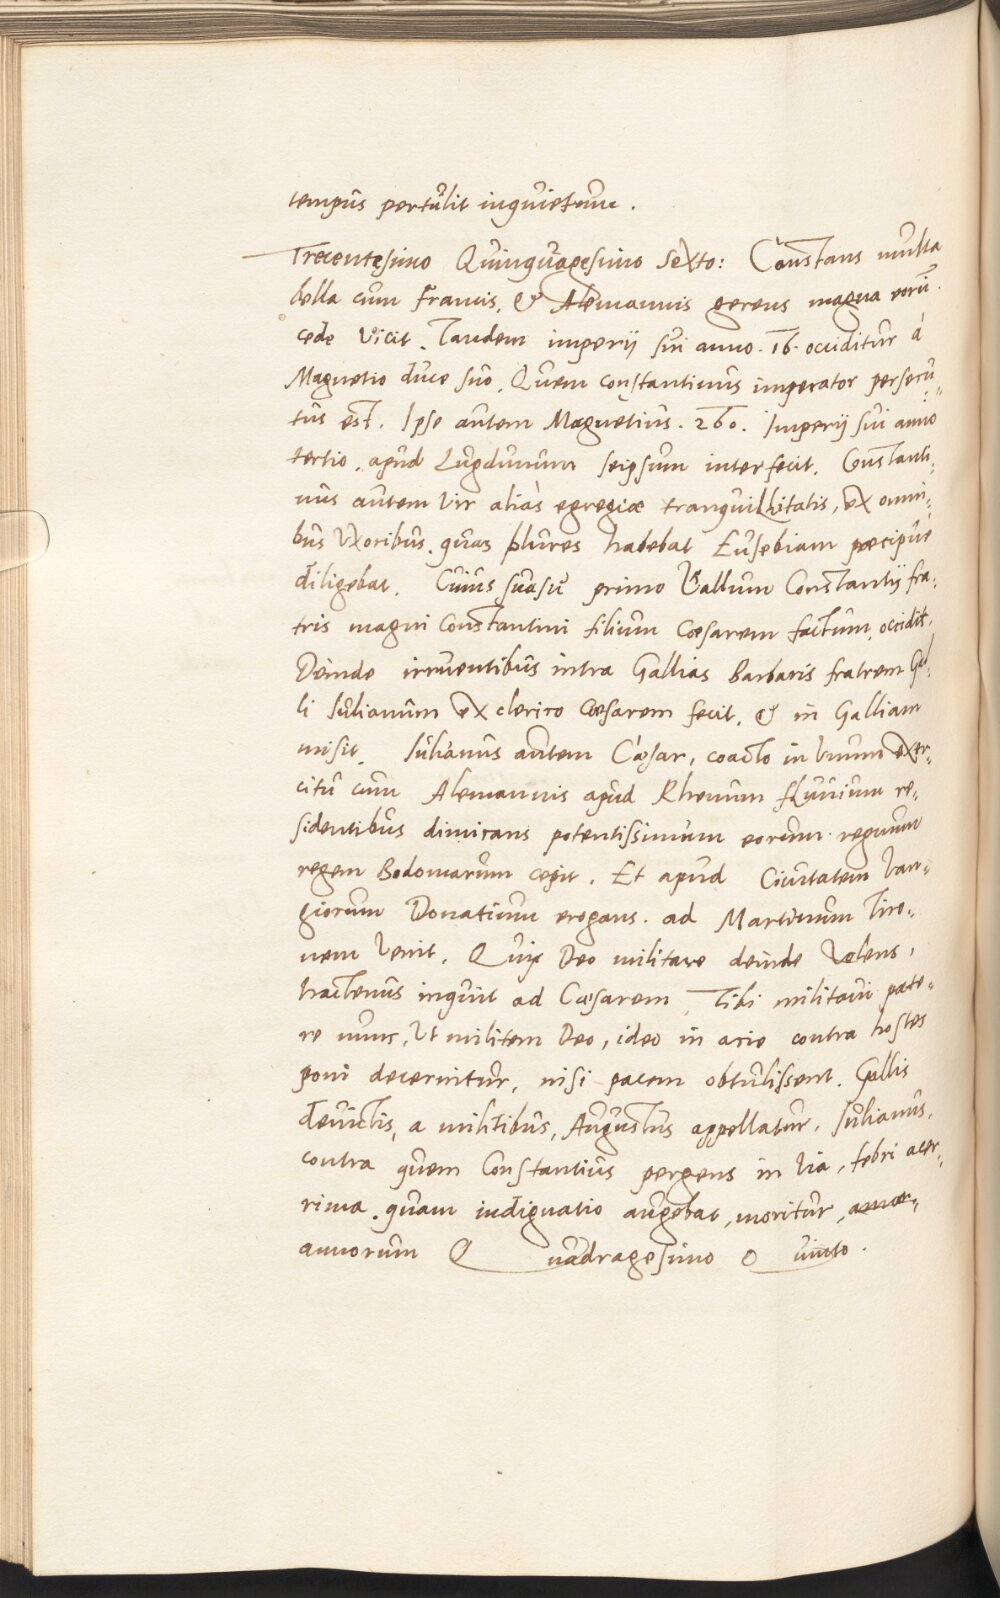 tempus pertulit inquietum.
Trecentesimo Quinquagesimo Sexto: Constans multa
bella cum Francis, & Alemannis gerens magna eorū
cedę vicit. Tandem imperij sui anno. 16. occiditur á
Magnetio duce suo, Quem constantinus imperator persecu„
tus est. Ipse autem Magnetius. 260. Imperij sui anno
tertio, apud Lugdunum seipsum interfecit. Constanti„
nus autem vir aliàs egregiæ tranquillitatis, ex omni„
bus Vxoribus, quas plures habebat Eusebiam præcipue
diligebat. Cuius suasu primo Gallum Constantij fra„
tris magni Constantini filium Cæsarem factum, occidit.
Deinde irruentibus intra Gallias Barbaris fratrem Gal„
li Iulianum ex clerico Cæsarem fecit, & in Galliam
misit. Iulianus autem Cæsar, coacto in vnum exer„
citu cum Alemannis apud Rhenum fluuium re„
sidentibus dimicans potentissimum eorum regnum
regem Bodomarum cępit. Et apud Ciuitatem Van„
giorum Donatiuum erogans. ad Martinum Tiro„
nem venit. Qui Deo militare deinde volens,
hactenus inquit ad Cæsarem, Tibi militaui pate„
re nunc, vt militem Deo, ideo in acie contra hostes
poni decernitur, nisi pacem obtulissent. Gallis
deuictis, a militibus, Augustus appellatur, Iulianus,
contra quem Constantius pergens in via, febri acer„
rima, quam indignatio augebat, moritur,
annorum Quadragesimo Quinto.